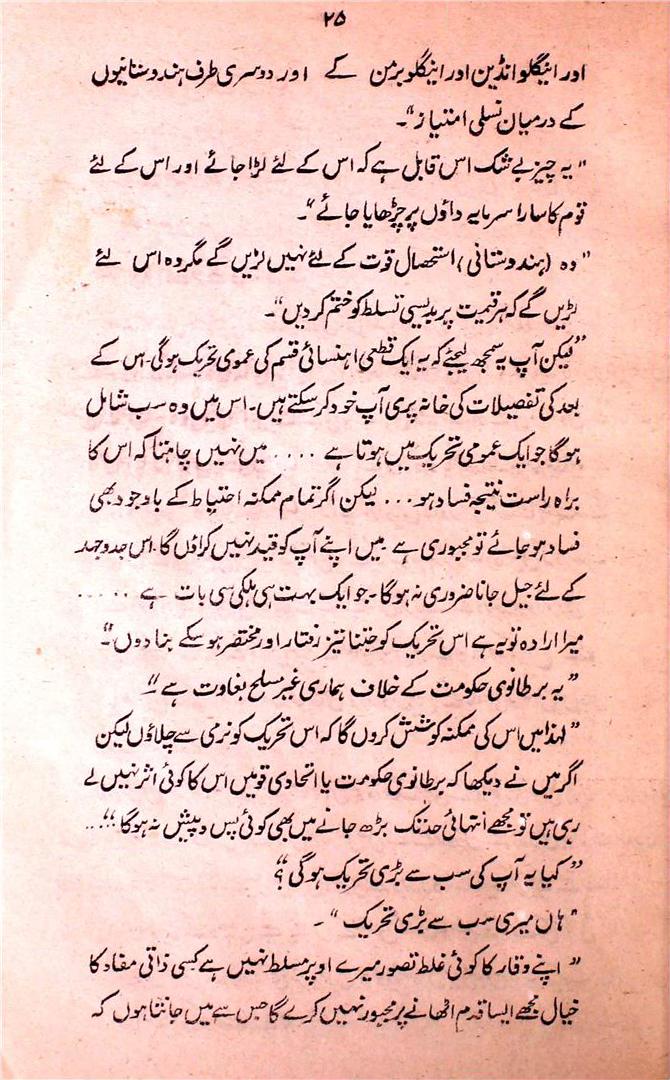 ۲۵
اور اینگلو انڈین اور اینگلو برمن کے اور دوسری طرف ہندوستانیوں
کے درمیان نسلی امتیاز"۔
"یہ چیز بے شک اس قابل ہے کہ اس کے لئے لڑا جائے اور اس کے لئے
قوم کا سارا سرمایہ داؤں پر چڑھایا جائے"۔
"وہ (ہندوستانی) استحصال قوت کے لئے نہیں لڑیں گے مگر وہ اس لئے
لڑیں گے کہ ہر قیمت پر بدیسی تسلط کو ختم کر دیں"۔
"لیکن آپ یہ سمجھ لیجئے کہ یہ ایک قطعی اہنسائی قسم کی عمومی تحریک ہوگی۔ اس کے
بعد کی تفصیلات کی خانہ پری آپ خود کر سکتے ہیں۔ اس میں وہ سب شامل
ہوگا جو ایک عمومی تحریک میں ہوتا ہے .... میں نہیں چاہتا کہ اس کا
براہ راست نتیجہ فساد ہو... لیکن اگر تمام ممکنہ احتیاط کے باوجود بھی
فساد ہو جائے تو مجبوری ہے میں اپنے آپ کو قید نہیں کراؤں گا۔ اس جدوجہد
کے لئے جیل جانا ضروری نہ ہوگا۔ جو ایک بہت ہی ہلکی سی بات ہے .....
میرا ارادہ تو یہ ہے اس تحریک کو جتنا تیز رفتار اور مختصر ہو سکے بنا دوں"۔
"یہ برطانوی حکومت کے خلاف ہماری غیر مسلح بغاوت ہے"۔
"لہذا میں اس کی ممکنہ کوشش کروں گا کہ اس تحریک کو نرمی سے چلاؤں لیکن
اگر میں نے دیکھا کہ برطانوی حکومت یا اتحادی قومیں اس کا کوئی اثر نہیں لے
رہی ہیں تو مجھے انتہائی حد تک بڑھ جانے میں بھی کوئی پس و پیش نہ ہوگا"...
"کیا یہ آپ کی سب سے بڑی تحریک ہوگی"؟
"ہاں میری سب سے بڑی تحریک"۔
"اپنے وقار کا کوئی غلط تصور میرے اوپر مسلط نہیں ہے کسی ذاتی مفاد کا
خیال مجھے ایسا قدم اٹھانے پر مجبور نہیں کرے گا جس سے میں جانتا ہوں کہ